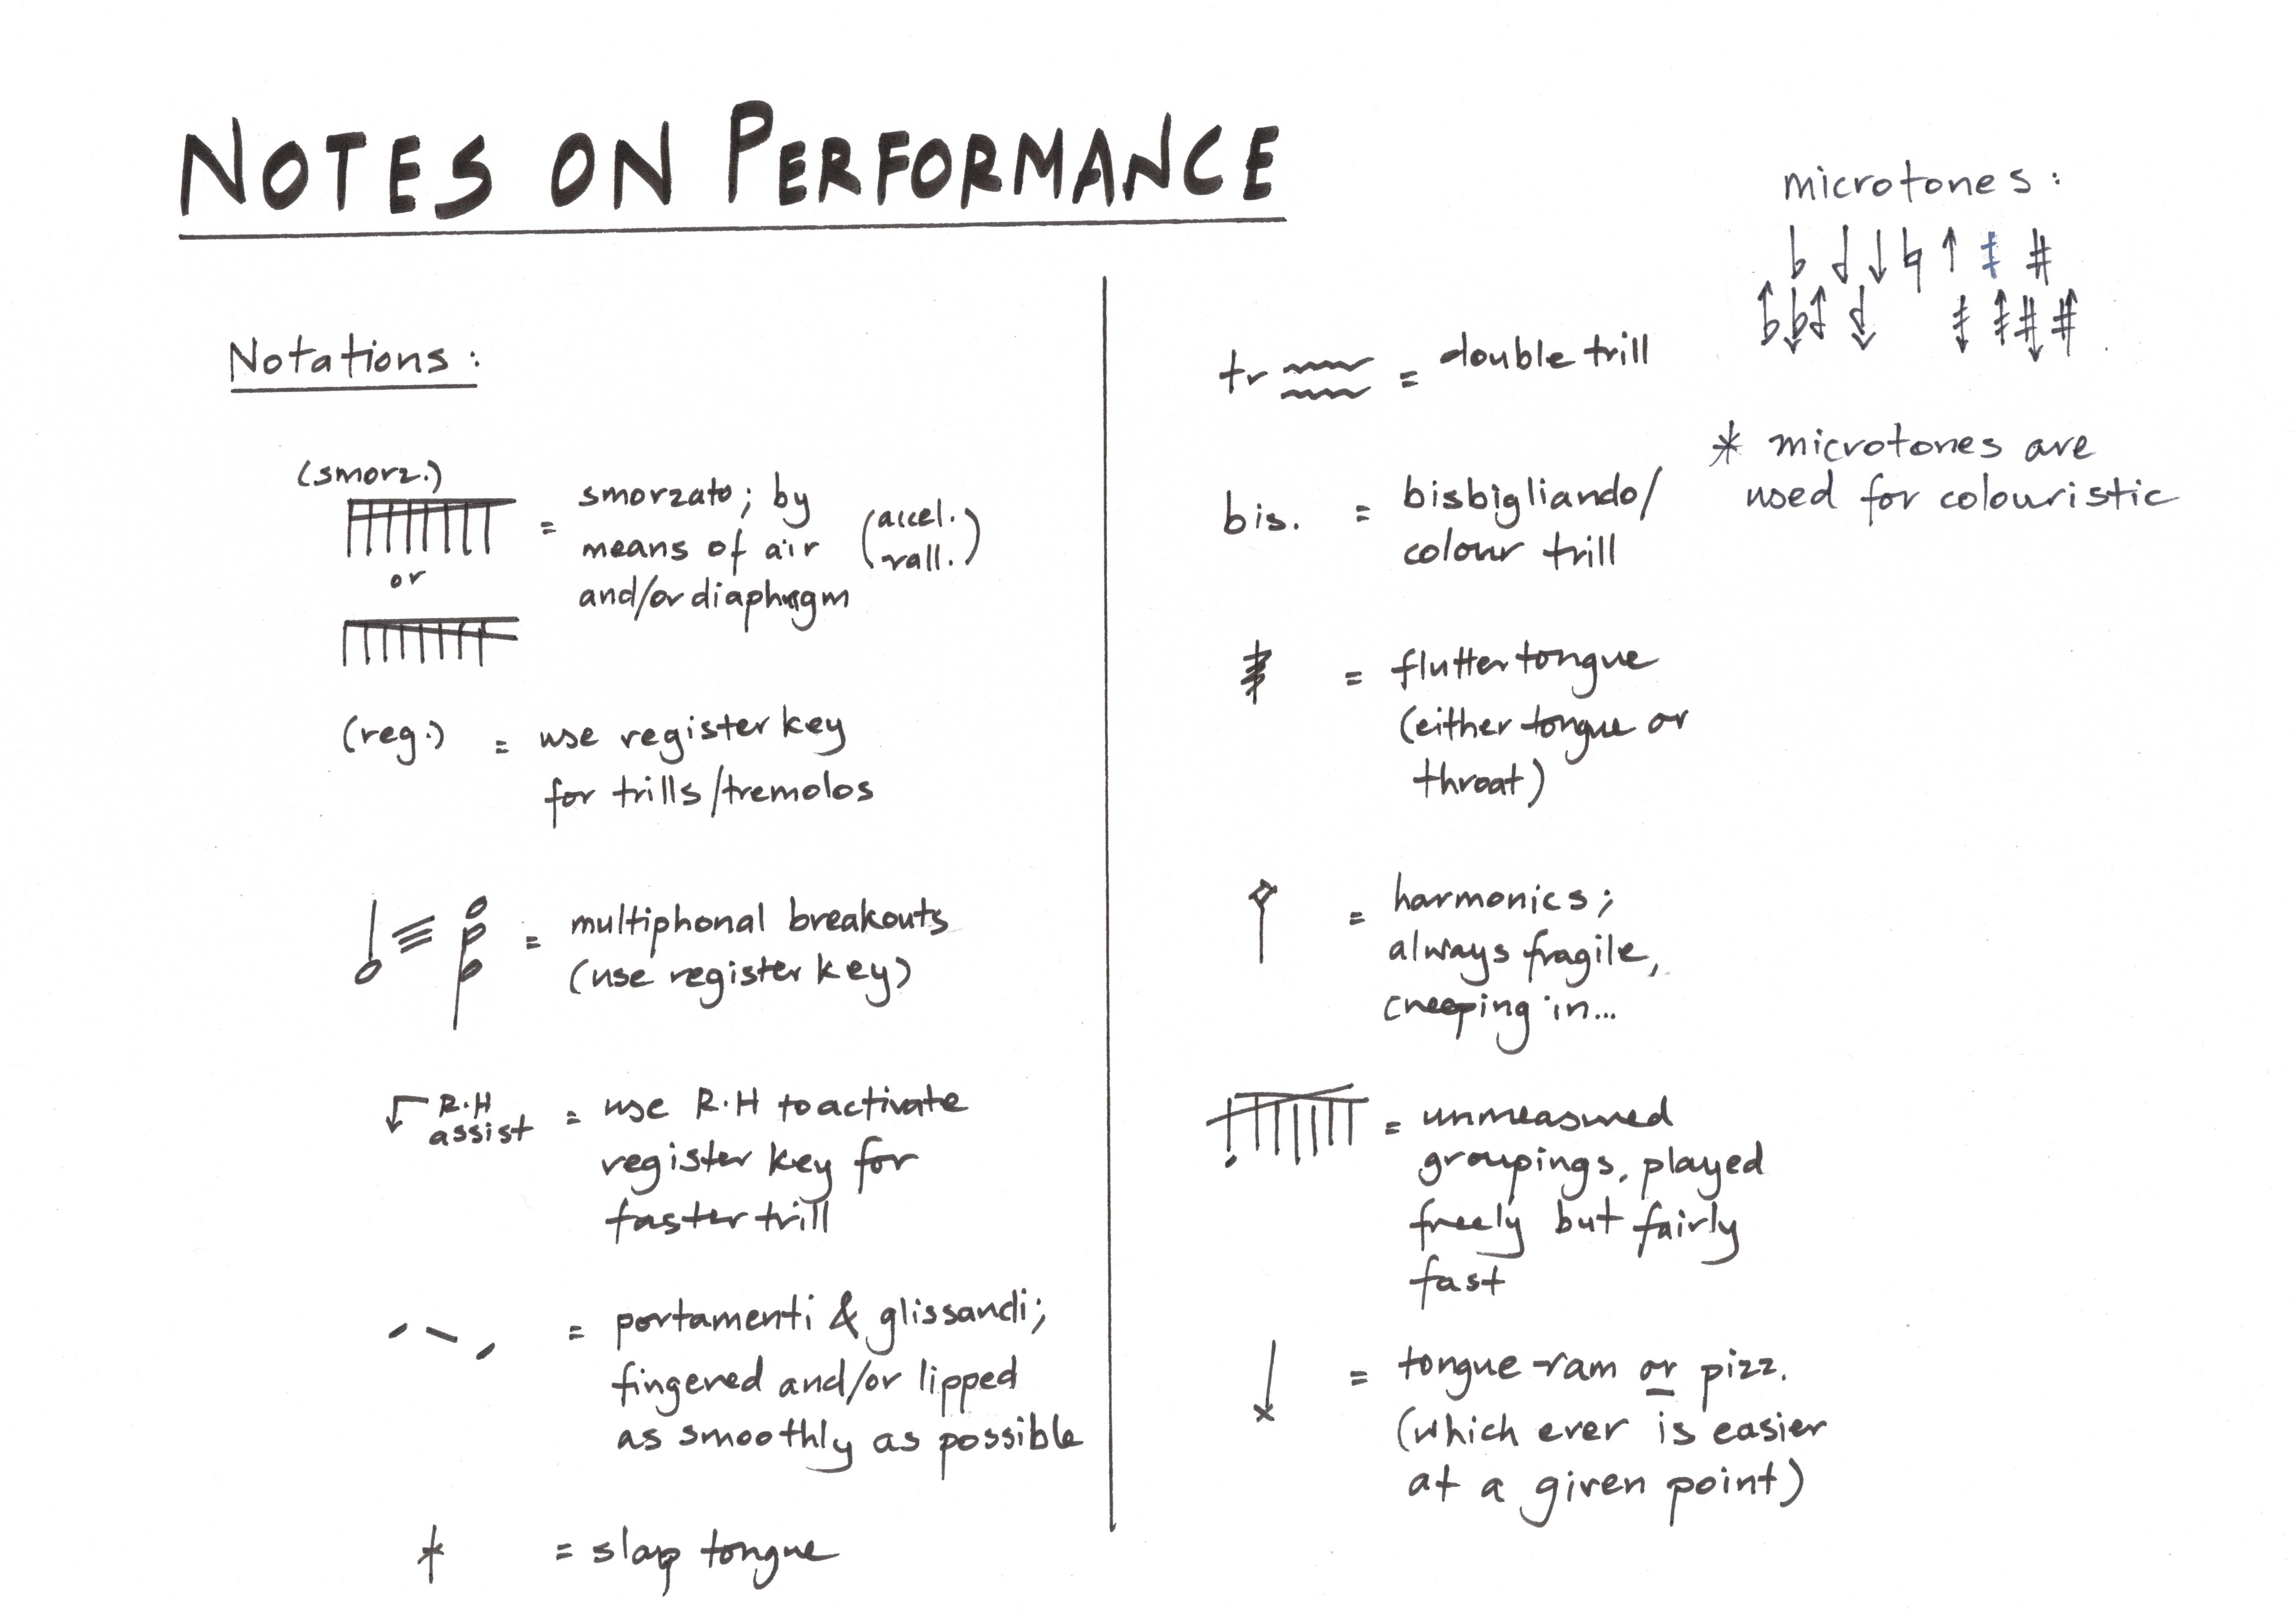 NOTES ON PERFORMANCE
Notations :
(smorz.)
or
= smorzato; by
means of air
and/or diaphragm
(accel.
rall.)
(reg.) = use register key
for trills/tremolos
= multiphonal breakouts
(use register key)
R.H
assist
= use R.H to activate
register key for
faster trill
= portamenti & glissandi;
fingered and/or lipped
as smoothly as possible
= slap tongue
tr = double trill
bis. = bisbigliando/
colour trill
= flutter tongue
(either tongue or
throat)
= harmonics;
always fragile,
creeping in...
= unmeasured
groupings, played
freely but fairly
fast
= tongue-ram or pizz.
(which ever is easier
at a given point)
microtones :
* microtones are
used for colouristic